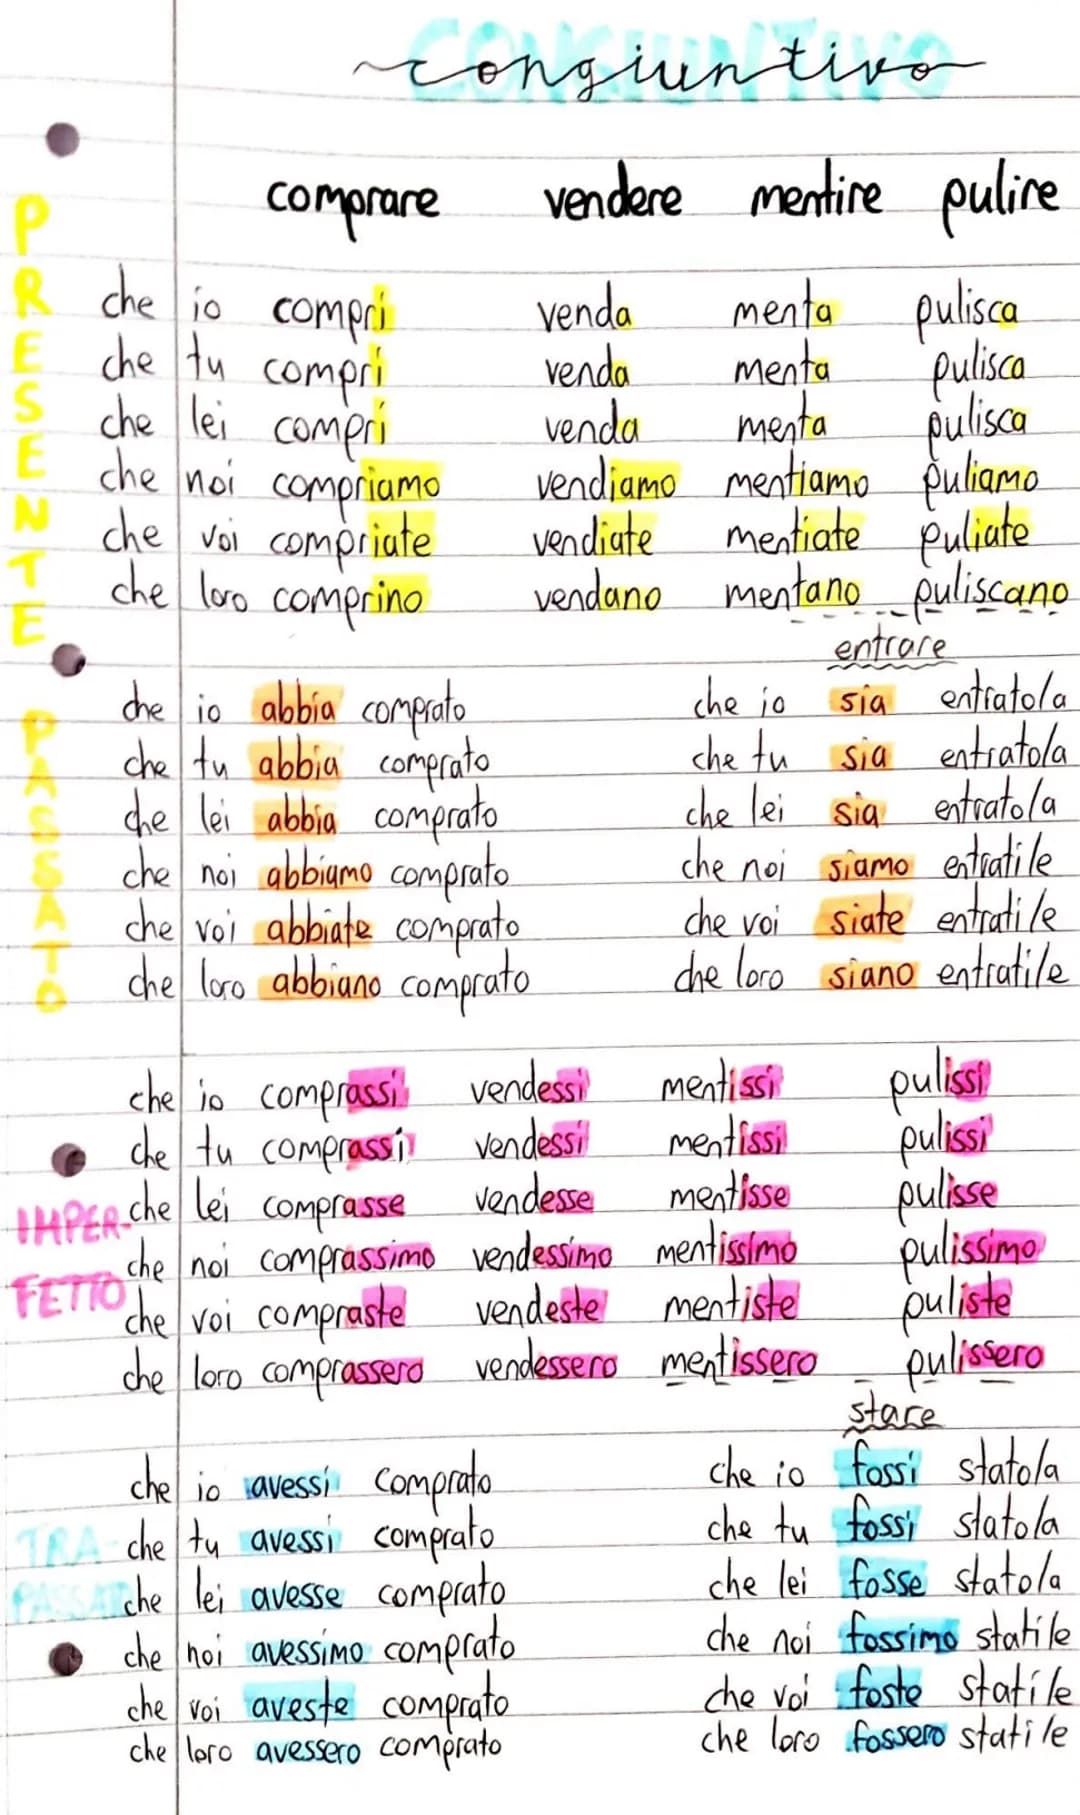 CONGIUNTIVO
congiuntivo
comprare vendere mentire pulire
PRESENTE
che io compri venda menta pulisca
che tu compri venda menta pulisca
che lei compri venda menta pulisca
che noi compriamo vendiamo mentiamo puliamo
che voi compriate vendiate mentiate puliate
che loro comprino vendano mentano puliscano
entrare
PASSATO
che io abbia comprato che io sia entrato/a
che tu abbia comprato che tu sia entrato/a
che lei abbia comprato che lei sia entrato/a
che noi abbiamo comprato che noi siamo entrati/e
che voi abbiate comprato che voi siate entrati/e
che loro abbiano comprato che loro siano entrati/e
IMPER-
FETTO
che io comprassi vendessi mentissi pulissi
che tu comprassi vendessi mentissi pulissi
che lei comprasse vendesse mentisse pulisse
che noi comprassimo vendessimo mentissimo pulissimo
che voi compraste vendeste mentiste puliste
che loro comprassero vendessero mentissero pulissero
stare
TRA-
PASSATO
che io avessi comprato che io fossi stato/a
che tu avessi comprato che tu fossi stato/a
che lei avesse comprato che lei fosse stato/a
che noi avessimo comprato che noi fossimo stati/e
che voi aveste comprato che voi foste stati/e
che loro avessero comprato che loro fossero stati/e